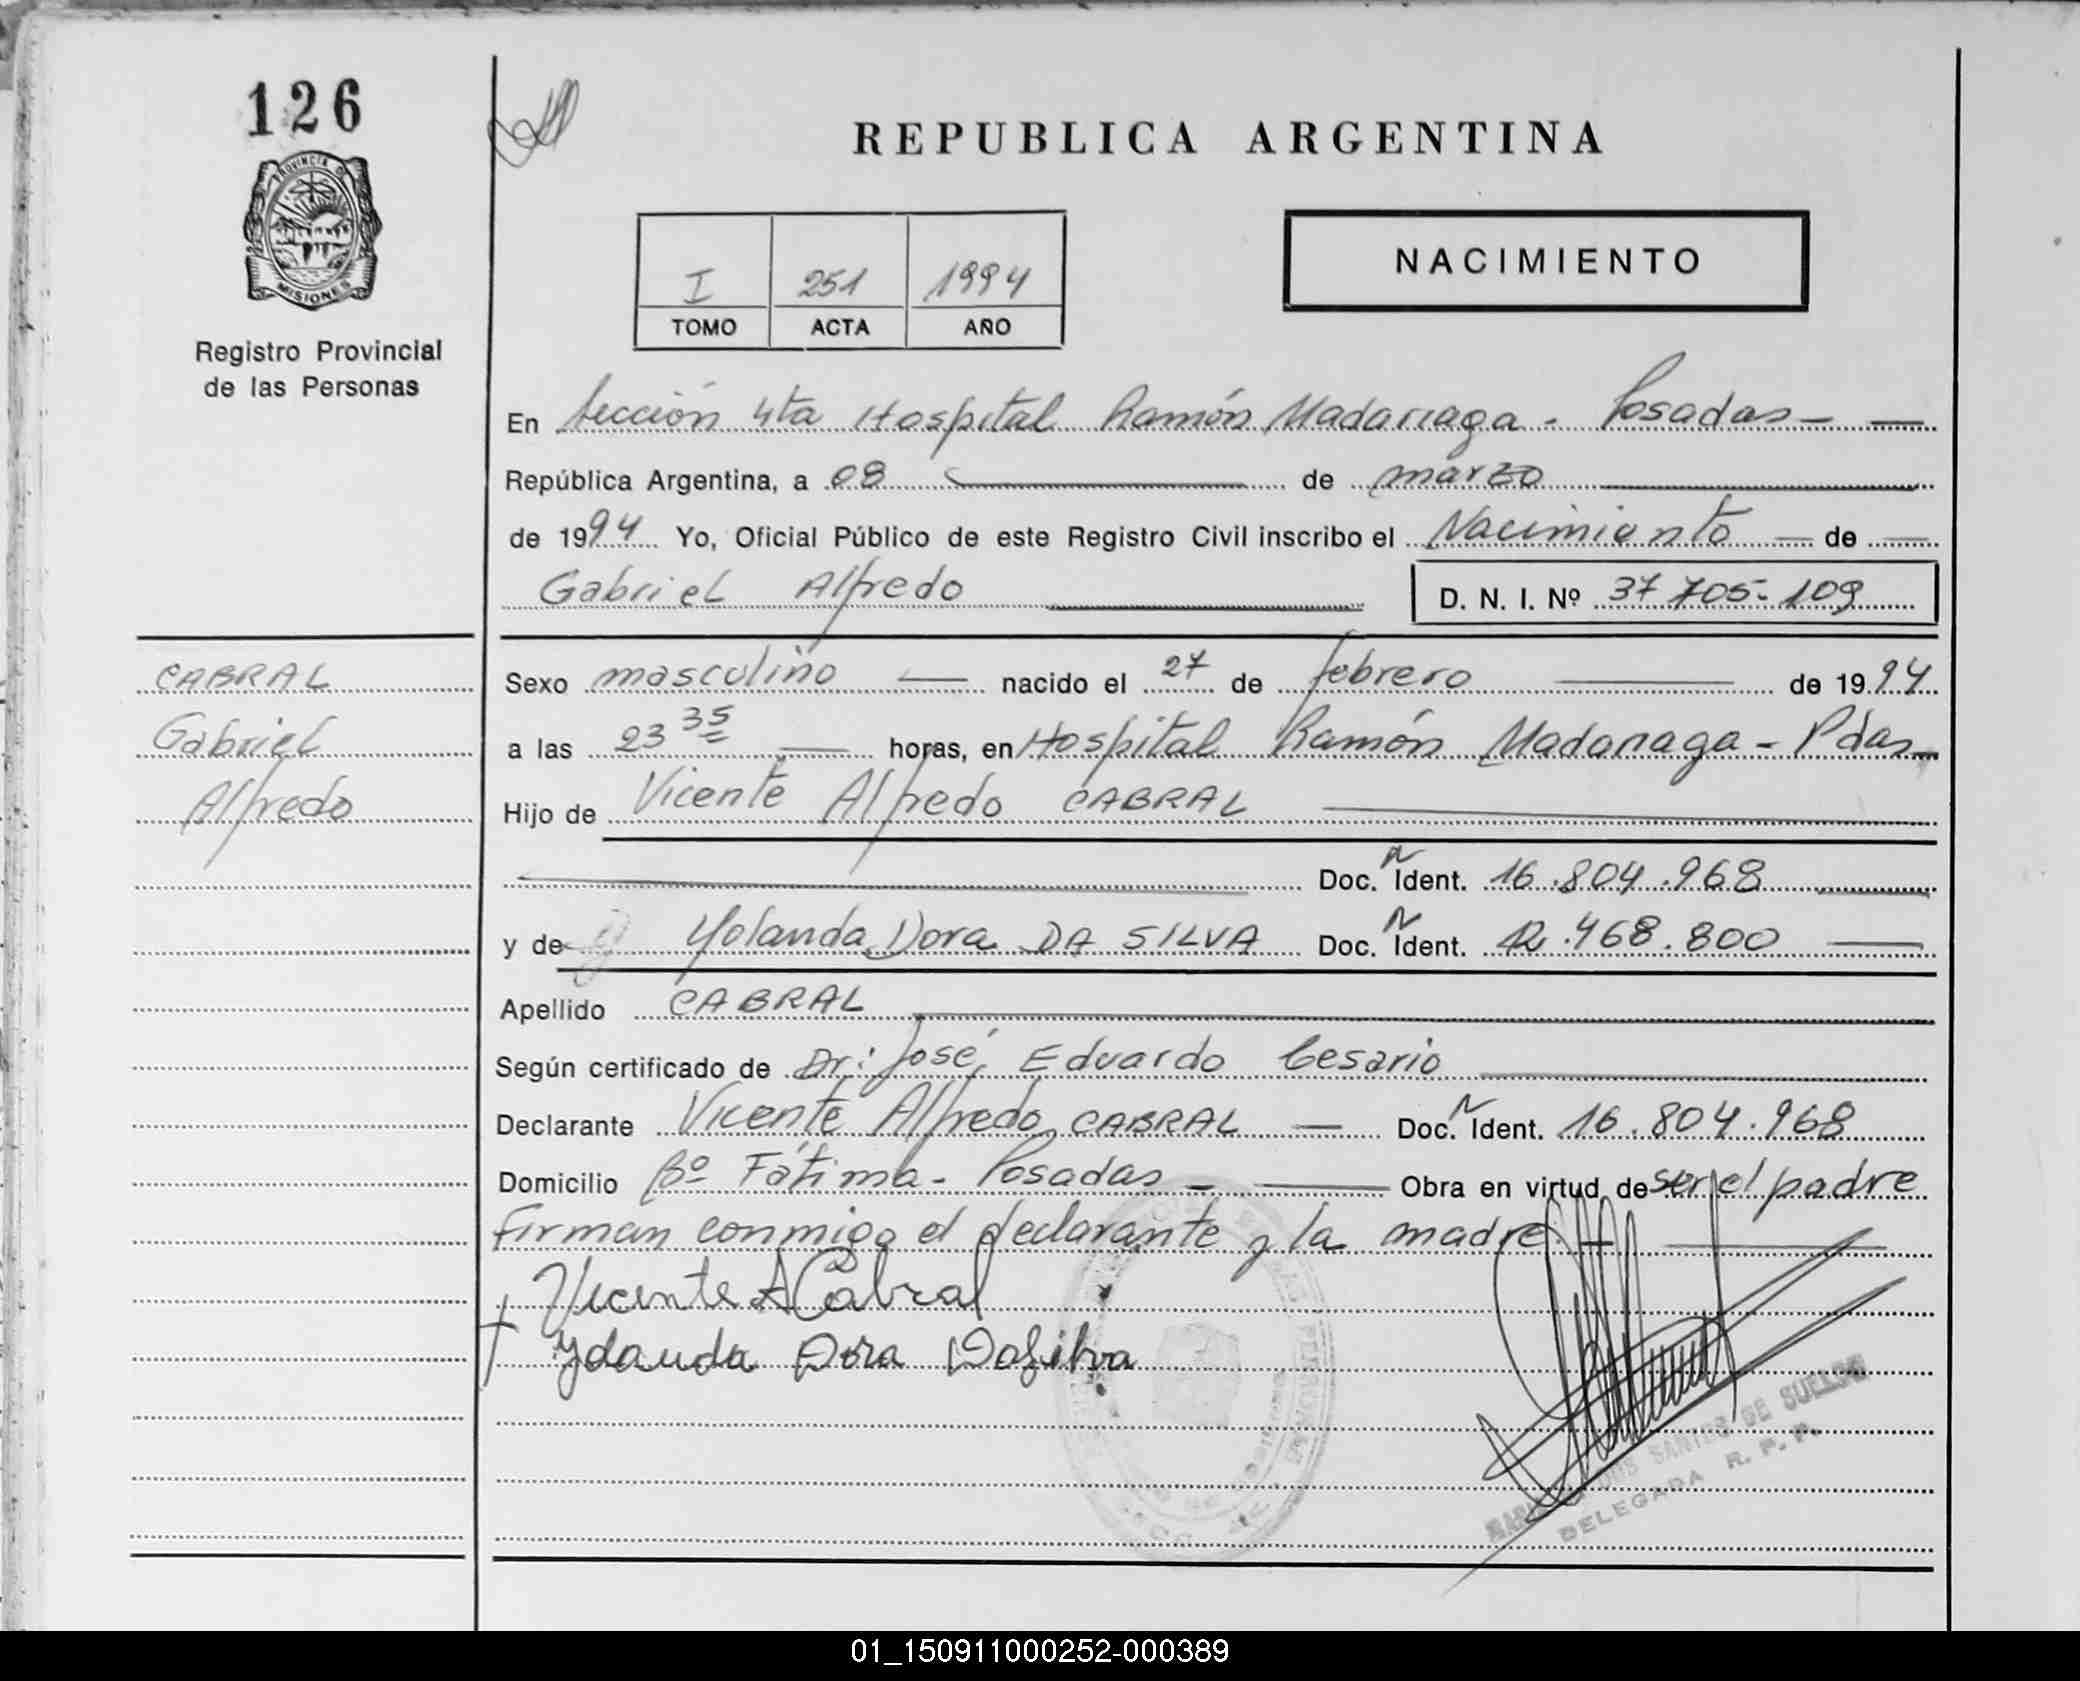 126
PROVINCIA DE
MISIONES
Registro Provincial
de las Personas
REPUBLICA ARGENTINA
NACIMIENTO
I 251 1994
TOMO ACTA AÑO
En Sección 4ta Hospital Ramón Madariaga - Posadas -
República Argentina, a 08 de marzo
de 1994 Yo, Oficial Público de este Registro Civil inscribo el Nacimiento de
Gabriel Alfredo D. N. I. Nº 37 705- 109
CABRAL
Gabriel
Alfredo
Sexo masculino nacido el 27 de febrero de 1994
a las 23 35 horas, en Hospital Ramón Madariaga - Pdas
Hijo de Vicente Alfredo CABRAL
Doc. N Ident. 16.804.968
y de Yolanda Dora DA SILVA Doc. N Ident. 12.468.800
Apellido CABRAL
Según certificado de Dr: José Eduardo Cesario
Declarante Vicente Alfredo CABRAL Doc. N Ident. 16.804.968
Domicilio Bº Fátima - Posadas - Obra en virtud de ser el padre
Firman conmigo el declarante y la madre. -
Vicente A Cabral
Yolanda Dora Dasilva
SANTOS DE SUELDO
DELEGADA R. P. P.
01_150911000252-000389